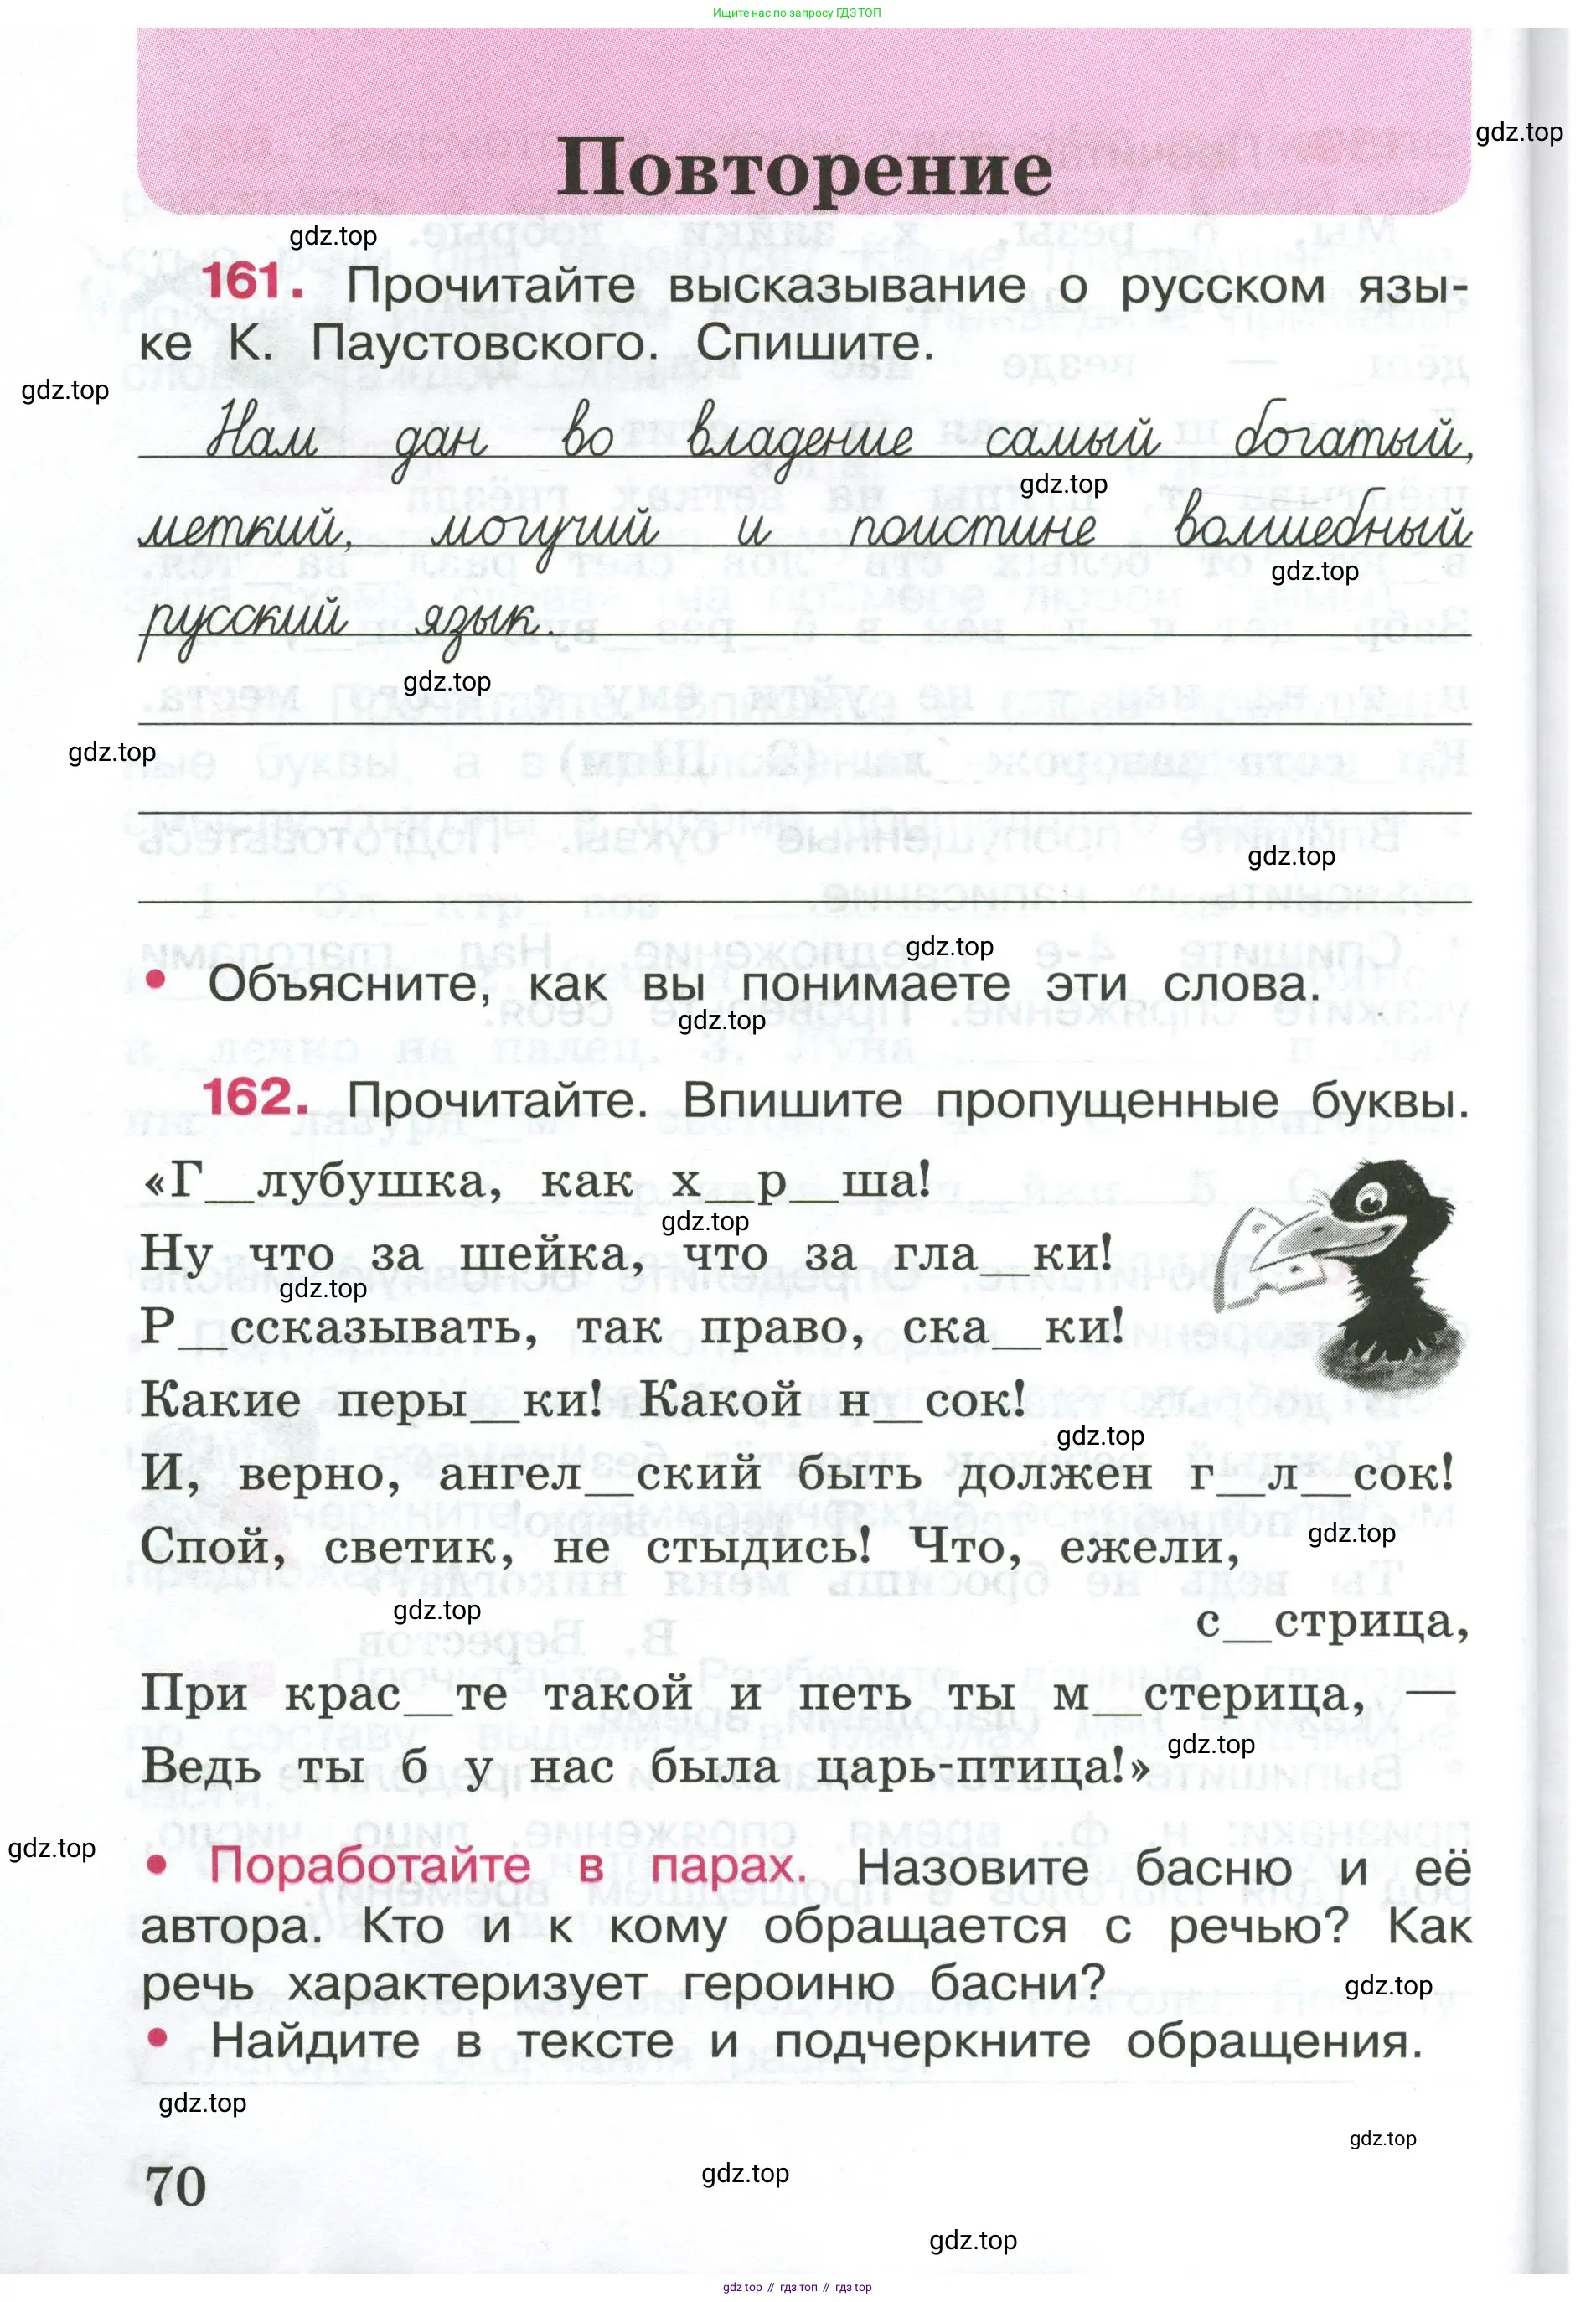 Ищите нас по запросу ГДЗ ТОП
Повторение
gdz.top
gdz.top
161. Прочитайте высказывание о русском язы-
ке К. Паустовского. Спишите.
gdz.top
Нам дан во владение самый богатый,
gdz.top
меткий, могучий и поистине волшебный
gdz.top
русский язык.
gdz.top
gdz.top
gdz.top
gdz.top
• Объясните, как вы понимаете эти слова.
gdz.top
162. Прочитайте. Впишите пропущенные буквы.
«Г__лубушка, как х__р__ша!
gdz.top
Ну что за шейка, что за гла__ки!
gdz.top
Р__ссказывать, так право, ска__ки!
Какие перы__ки! Какой н__сок!
gdz.top
И, верно, ангел__ский быть должен г__л__сок!
Спой, светик, не стыдись! Что, ежели,
gdz.top
gdz.top
с__стрица,
При крас__те такой и петь ты м__стерица, —
gdz.top
Ведь ты б у нас была царь-птица!»
gdz.top
• Поработайте в парах. Назовите басню и её
автора. Кто и к кому обращается с речью? Как
речь характеризует героиню басни?
gdz.top
• Найдите в тексте и подчеркните обращения.
gdz.top
gdz.top
70
gdz.top
gdz.top
gdz top // гдз топ // гдз top